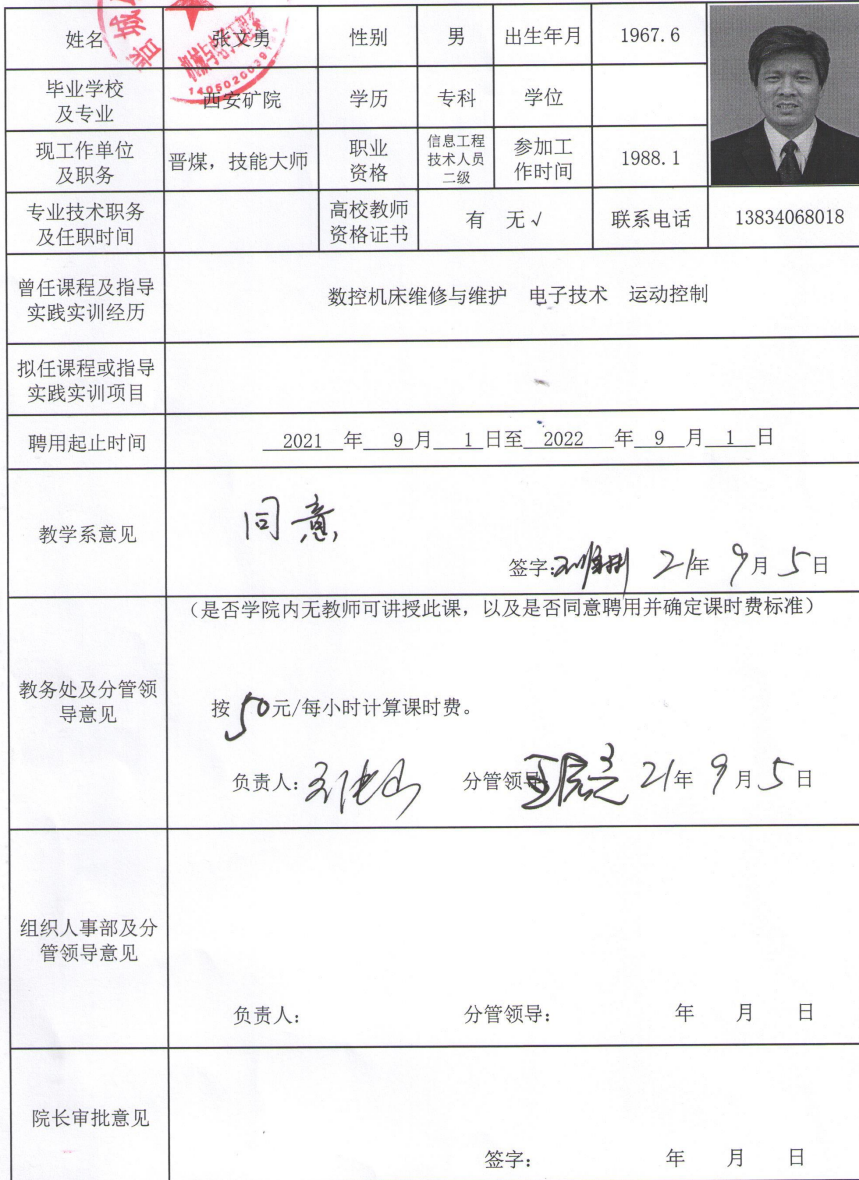 姓名 张文勇 性别 男 出生年月 1967.6
毕业学校
及专业 西安矿院 学历 专科 学位
现工作单位
及职务 晋煤，技能大师 职业
资格 信息工程
技术人员
二级 参加工
作时间 1988.1
专业技术职务
及任职时间 高校教师
资格证书 有 无√ 联系电话 13834068018
曾任课程及指导
实践实训经历 数控机床维修与维护 电子技术 运动控制
拟任课程或指导
实践实训项目
聘用起止时间 2021 年 9 月 1 日至 2022 年 9 月 1 日
教学系意见 同意
签字: 21年 9月 5日
（是否学院内无教师可讲授此课，以及是否同意聘用并确定课时费标准）
教务处及分管领
导意见 按 50元/每小时计算课时费。
负责人: 分管领导: 21年 9月 5日
组织人事部及分
管领导意见
负责人: 分管领导: 年 月 日
院长审批意见
签字: 年 月 日